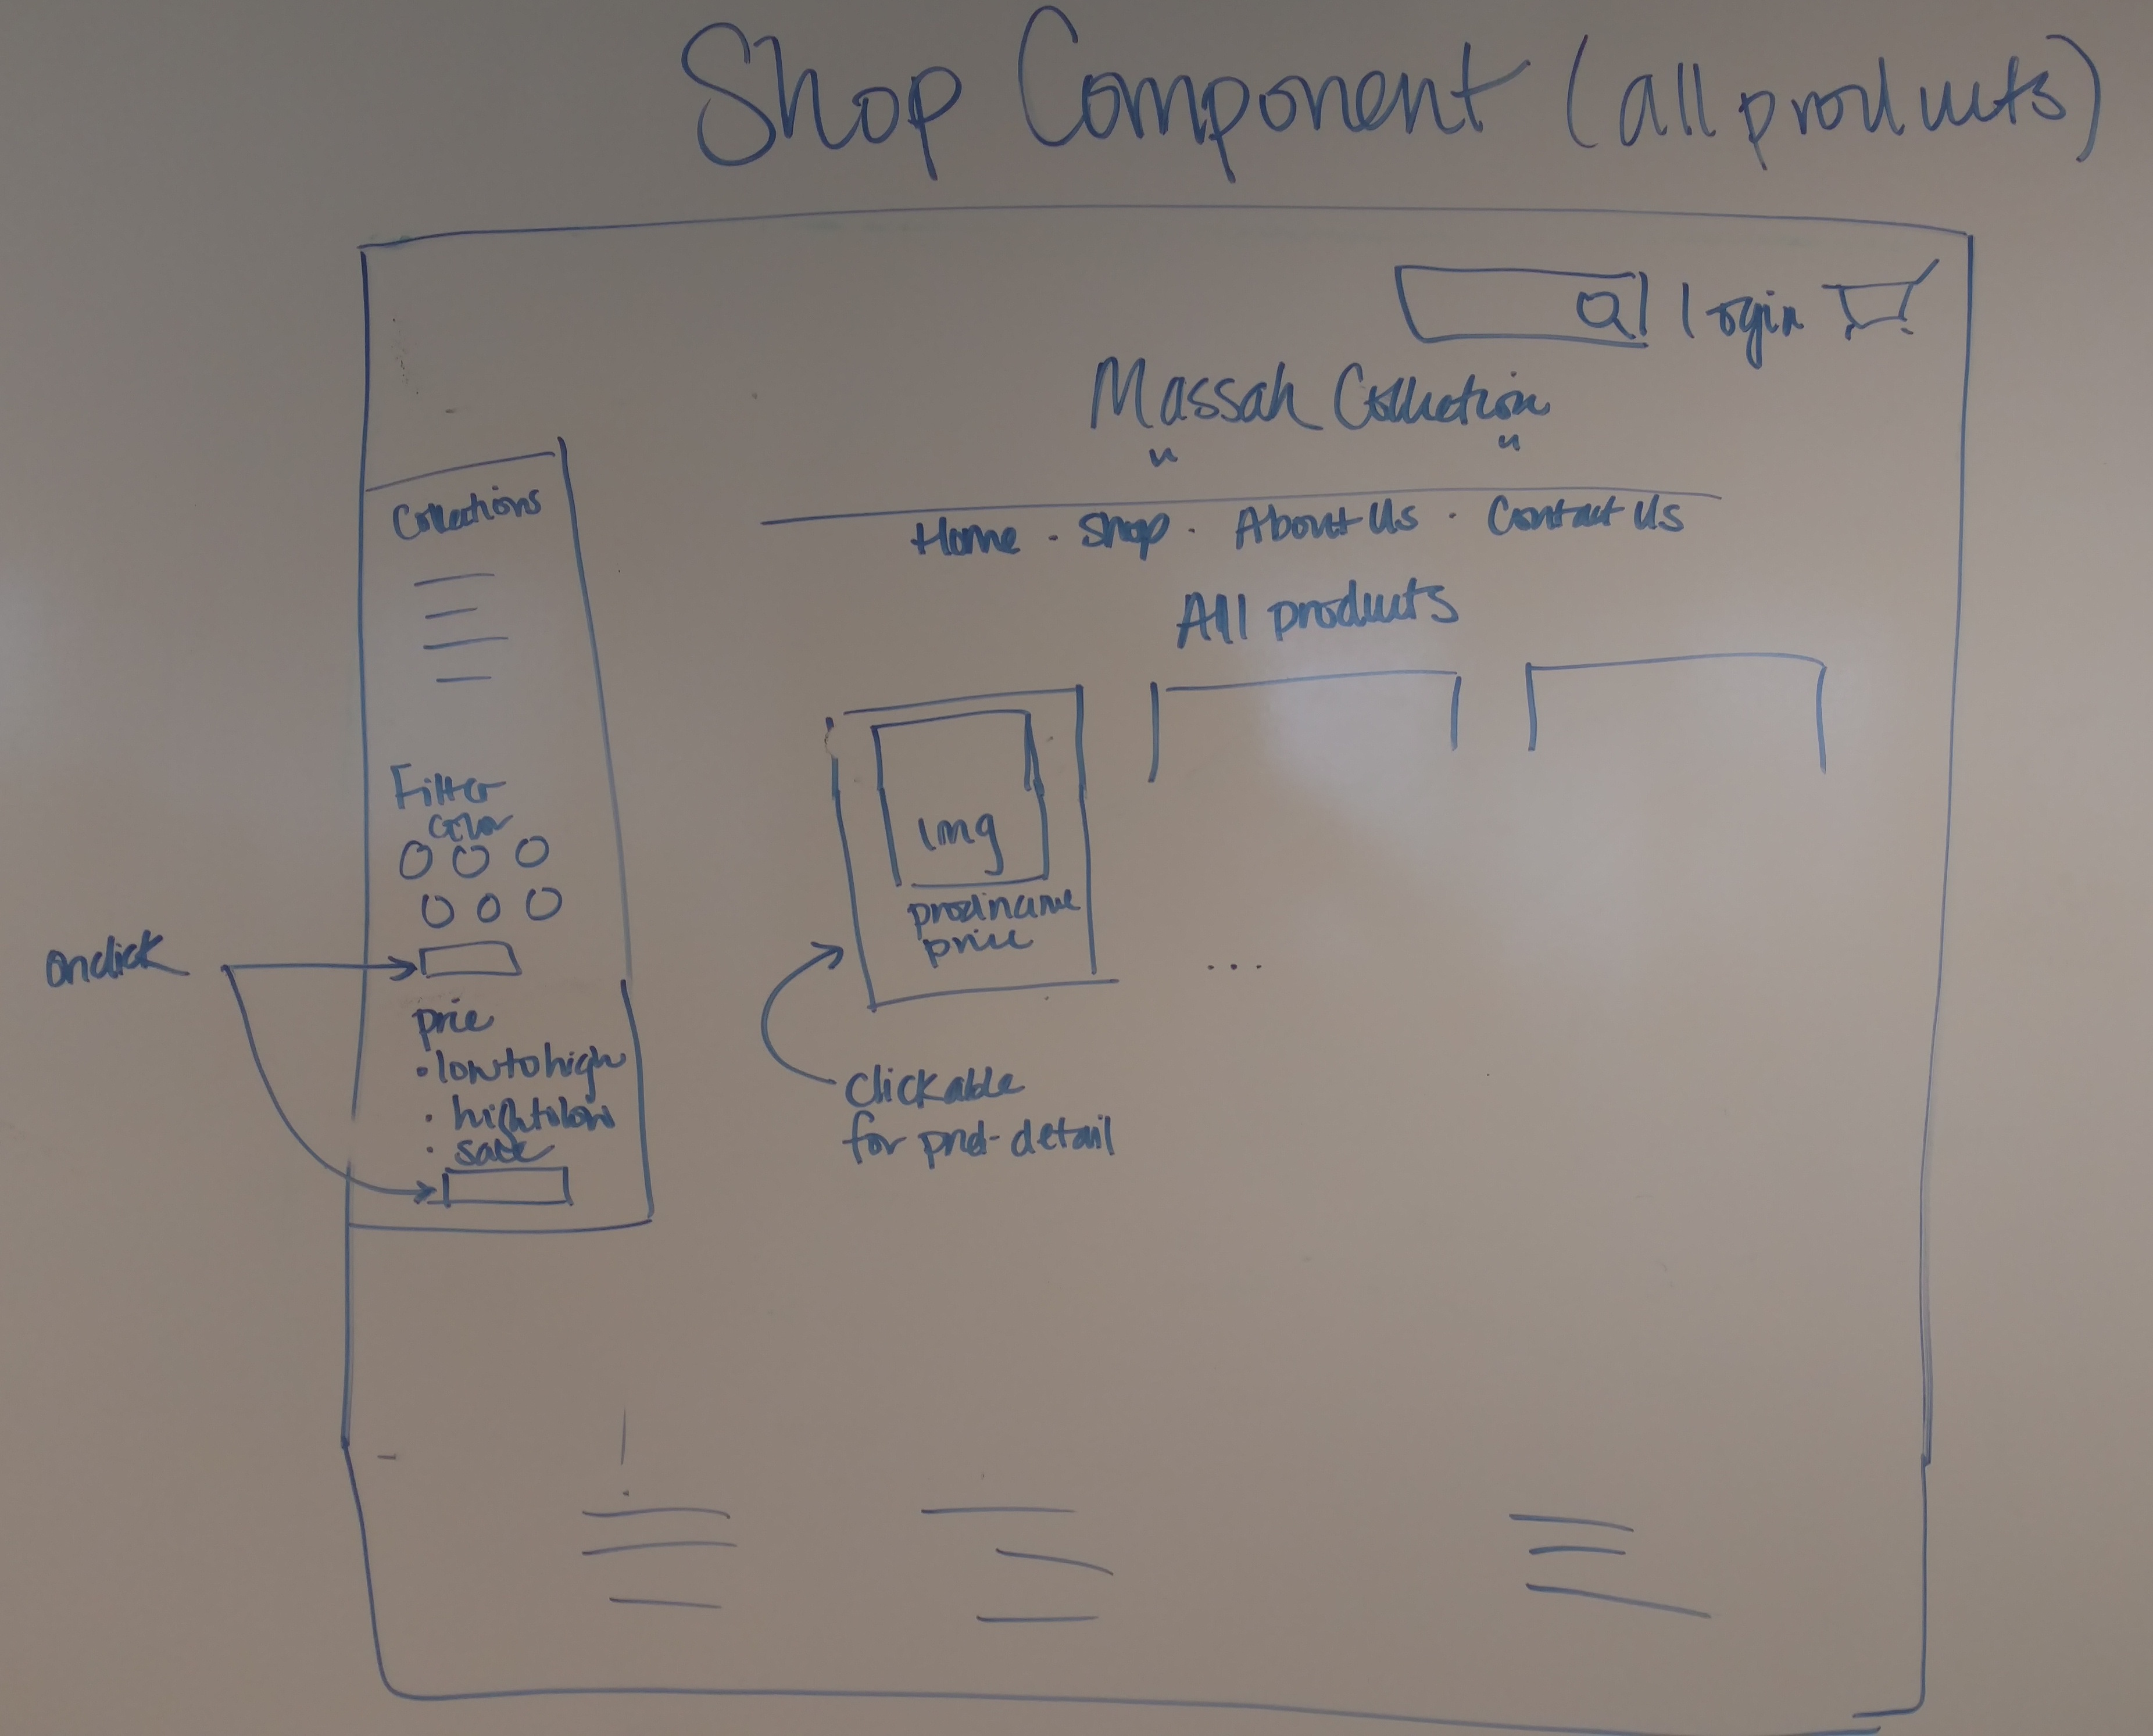 Shop Component (all products)
login
Massah Collection
Home · Shop · About Us · Contact Us
All products
Collections
Filter
color
onclick
price
• low to high
• high to low
• sale
img
prodname
price
...
clickable
for prod-detail